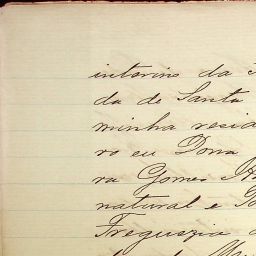 interino da
da de Santa
minha resid
ro eu Dona
ra Gomes
natural e
Freguezia